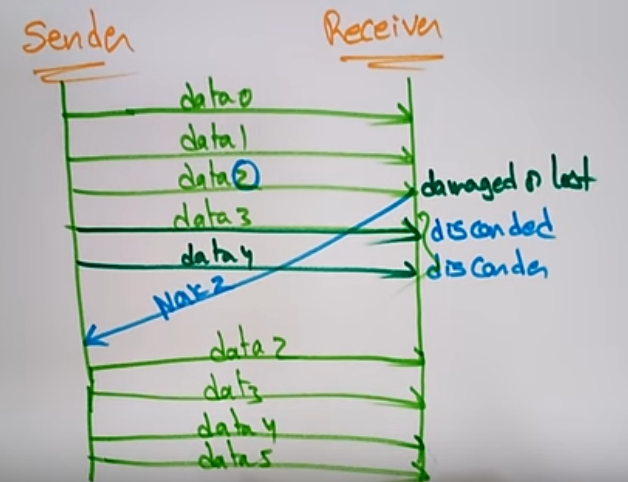 Sender Receiver
data0
data1
data2
damaged or lost
data3
discarded
data4
discarder
Nak2
data2
dat3
data4
data5